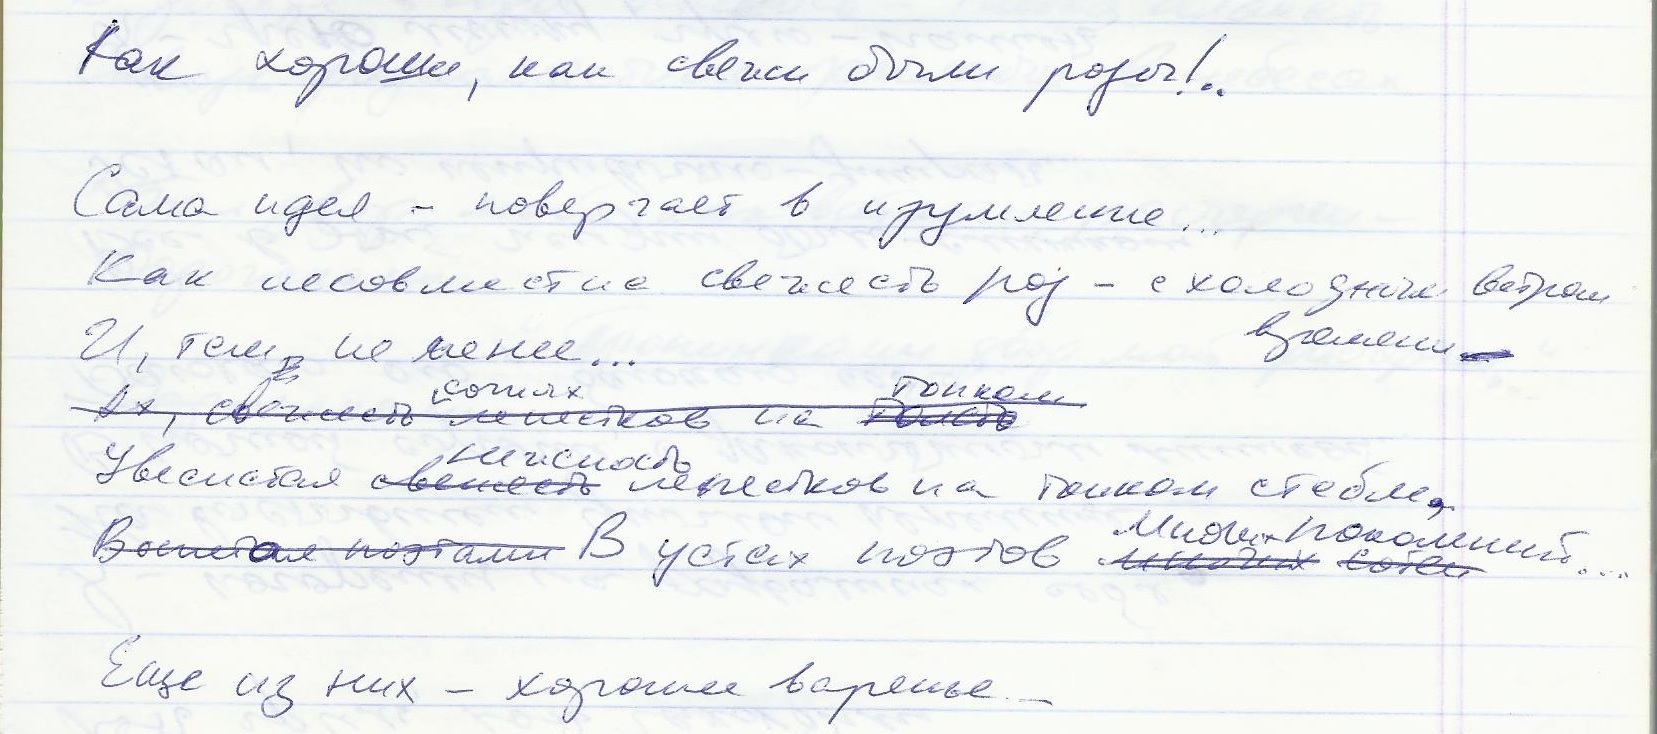 Как хороши, как свежи были розы!..
Сама идея - повергает в изумление...
Как несовместна свежесть роз - с холодным ветром
времени
И, тем не менее...
сочных тонком
Ах, свежесть лепестков на толсто
нежность
Увесистая свежесть лепестков на тонком стебле,
Многих поколений...
Воспетая поэтами В устах поэтов многих сотен
Еще из них - хорошее варенье...